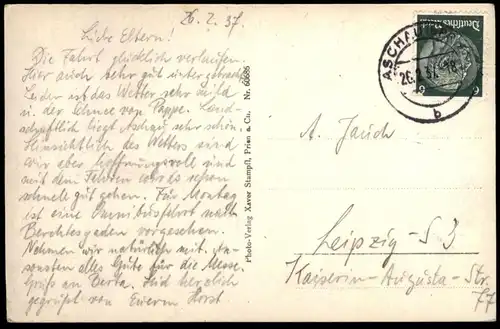 26.2.37.
Liebe Eltern!
Die Fahrt glücklich verlaufen.
Hier auch sehr gut untergebracht.
Leider ist das Wetter sehr mild
u. der Schnee von Pappe. Land-
schaftlich liegt Aschau sehr schön.
Hinsichtlich des Wetters sind
wir aber hoffnungsvoll und
mit dem Fahren wird es schon
schnell gut gehen. Für Montag
ist eine Omnibusfahrt nach
Berchtesgaden vorgesehen.
Nehmen wir natürlich mit. An-
sonsten alles Gute für die Messe.
Gruß an Berta. Seid herzlich
gegrüßt von Euerem Horst
Photo-Verlag Xaver Stampfl, Prien a. Ch. Nr. 6068b
ASCHAU
26.2.37.18
b
Deutsches Reich
6 6
A. Jauch
Leipzig - S 3
Kaiserin-Augusta-Str.
77